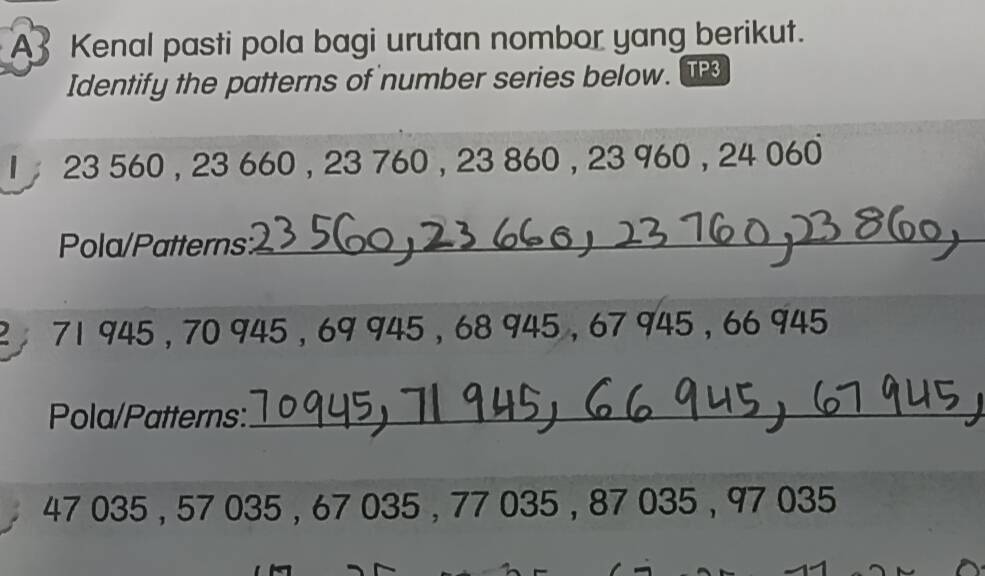 A Kenal pasti pola bagi urutan nombor yang berikut.
Identify the patterns of number series below. TP3
1 23 560 , 23 660 , 23 760 , 23 860 , 23 960 , 24 060
Pola/Patterns: 23 560, 23 660, 23 760, 23 860,
2 71 945 , 70 945 , 69 945 , 68 945 , 67 945 , 66 945
Pola/Patterns: 70945, 71 945, 66 945, 67 945,
47 035 , 57 035 , 67 035 , 77 035 , 87 035 , 97 035